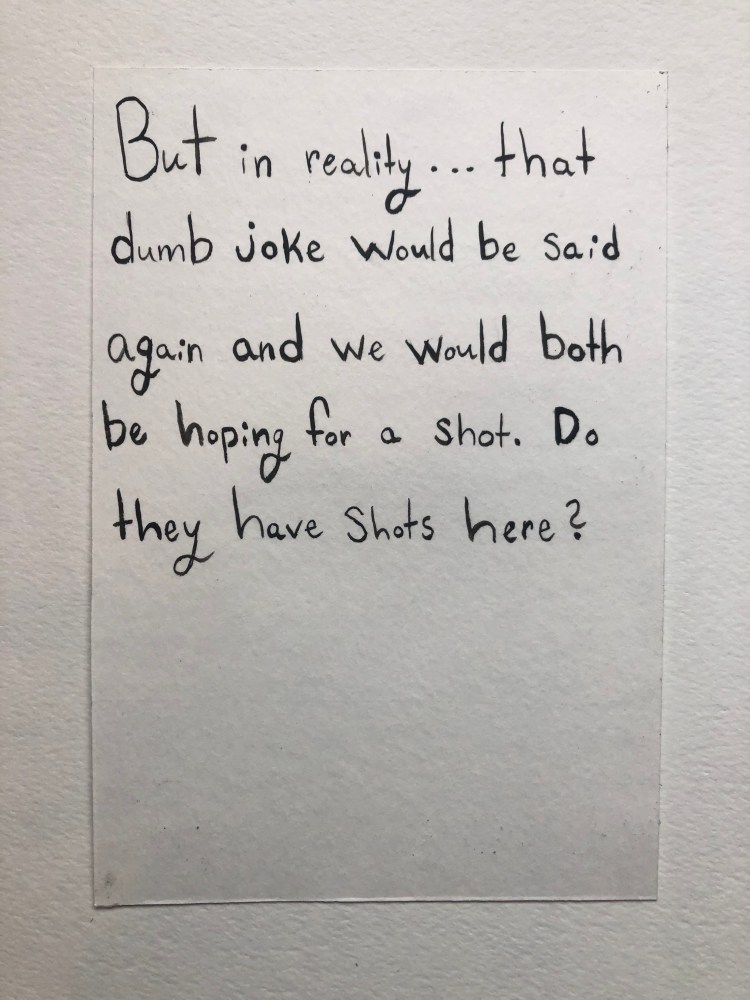 But in reality... that
dumb joke would be said
again and we would both
be hoping for a shot. Do
they have shots here?